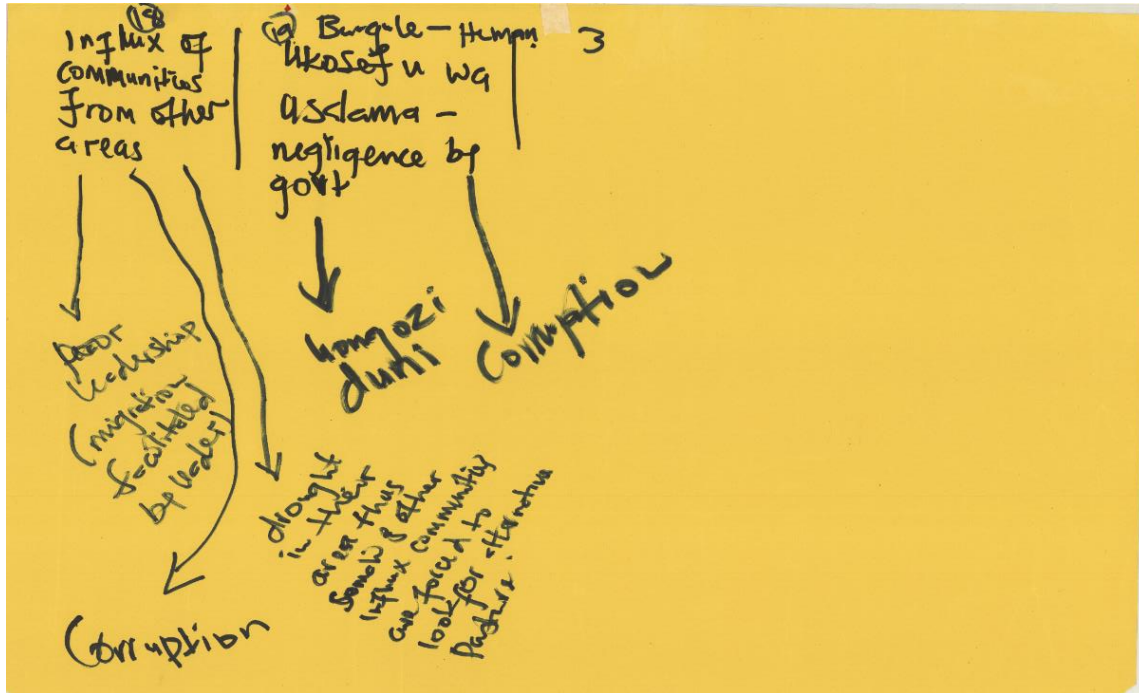 18
Influx of
communities
from other
areas
19 Bangale - Human
Ukosefu wa
usalama -
negligence by
govt
3
poor
leadership
(migration
facilitated
by leader)
Corruption
drought
in their
area thus
Somali & other
influx communities
are forced to
look for alternative
pasture.
uongozi
duni
Corruption